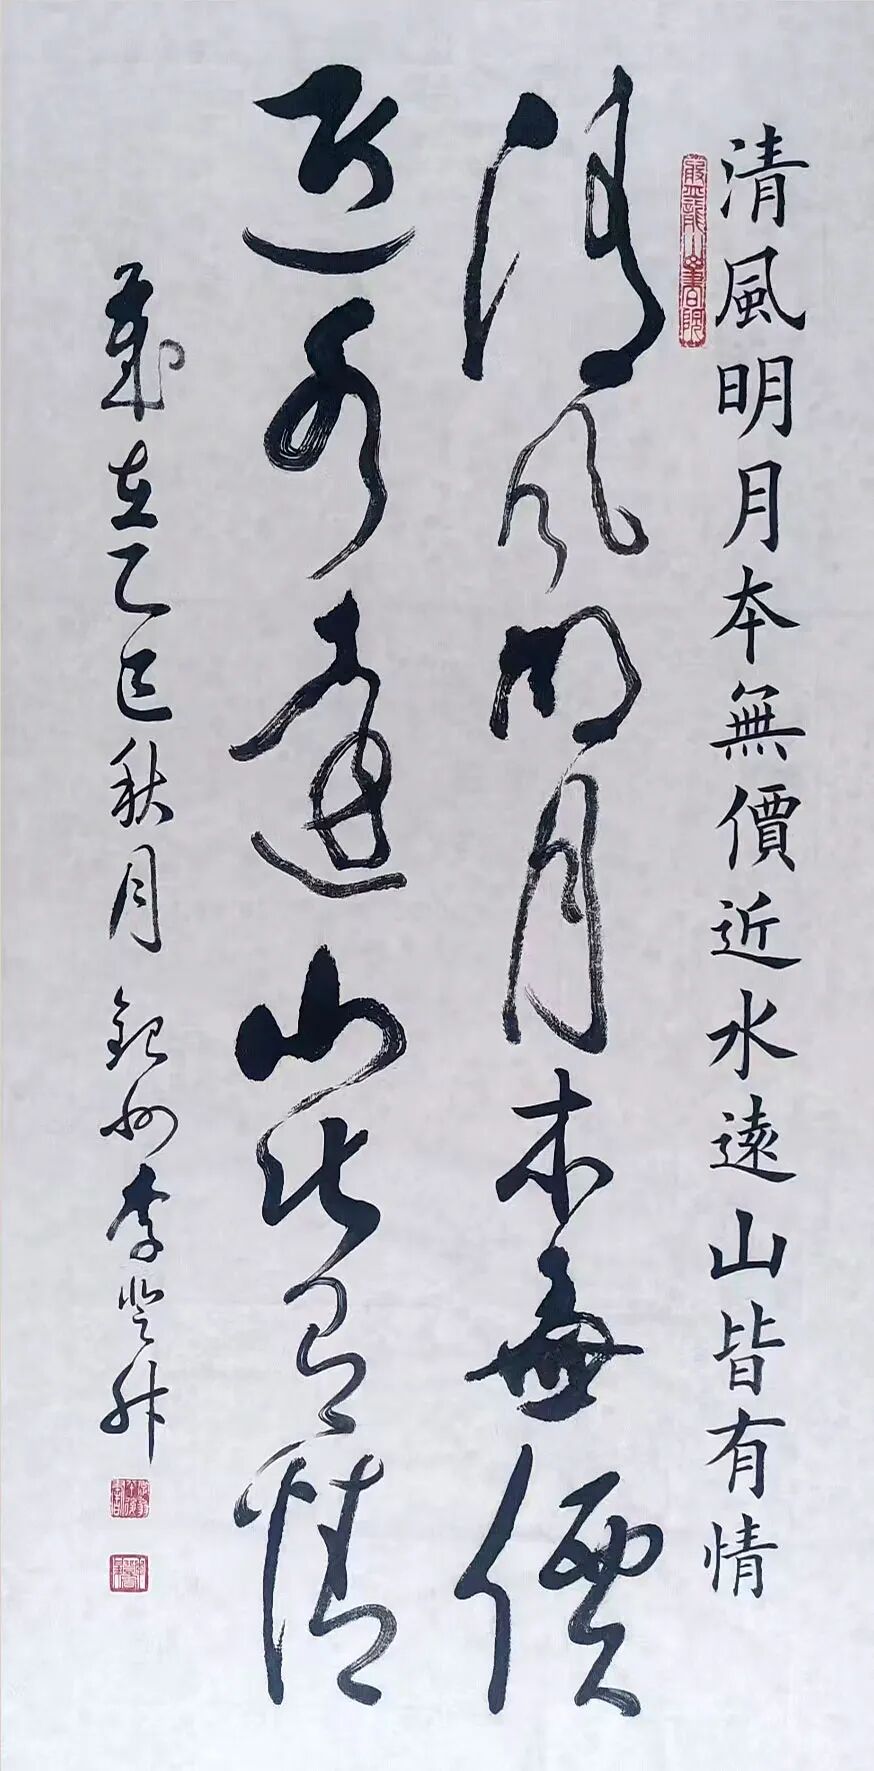 清風明月本無價近水遠山皆有情
清風明月本無價
近水遠山皆有情
歲在乙巳秋月 李登升